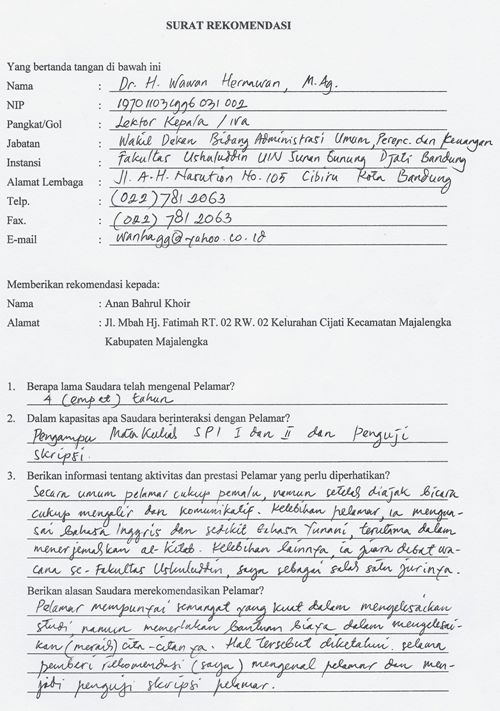 SURAT REKOMENDASI
Yang bertanda tangan di bawah ini
Nama : Dr. H. Wawan Hernawan, M.Ag.
NIP : 19701103 1996 031 002
Pangkat/Gol : Lektor Kepala / IVa
Jabatan : Wakil Dekan Bidang Administrasi Umum, Perenc. dan Keuangan
Instansi : Fakultas Ushuluddin UIN Sunan Gunung Djati Bandung
Alamat Lembaga : Jl. A.H. Nasution No. 105 Cibiru Kota Bandung
Telp. : (022) 781 2063
Fax. : (022) 781 2063
E-mail : wanhagg@yahoo.co.id
Memberikan rekomendasi kepada:
Nama : Anan Bahrul Khoir
Alamat : Jl. Mbah Hj. Fatimah RT. 02 RW. 02 Kelurahan Cijati Kecamatan Majalengka
Kabupaten Majalengka
1. Berapa lama Saudara telah mengenal Pelamar?
4 (empat) tahun
2. Dalam kapasitas apa Saudara berinteraksi dengan Pelamar?
Pengampu Mata Kuliah SPI I dan II dan Penguji
Skripsi.
3. Berikan informasi tentang aktivitas dan prestasi Pelamar yang perlu diperhatikan?
Secara umum pelamar cukup pemalu, namun setelah diajak bicara
cukup mengalir dan komunikatif. Kelebihan pelamar, ia mengua-
sai bahasa Inggris dan sedikit bahasa Yunani, terutama dalam
menerjemahkan al-kitab. Kelebihan lainnya, ia juara debat wa-
cana se-Fakultas Ushuluddin, saya sebagai salah satu jurinya.
Berikan alasan Saudara merekomendasikan Pelamar?
Pelamar mempunyai semangat yang kuat dalam mengelesaikan
studi, namun memerlukan bantuan biaya dalam mengelesai-
kan (meraih) cita-citanya. Hal tersebut diketahui, selama
pemberi rekomendasi (saya) mengenal pelamar dan men-
jadi penguji skripsi pelamar.